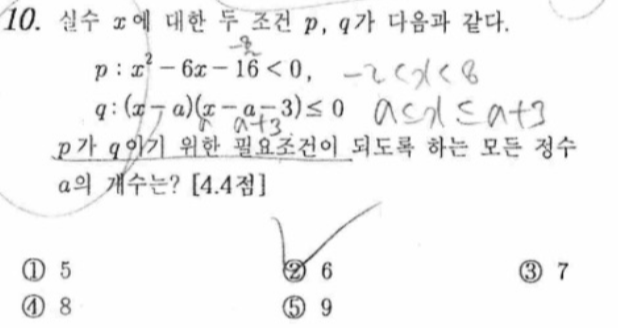 10. 실수 x에 대한 두 조건 p, q가 다음과 같다.
p : x² - 6x - 16 < 0, -2<x<8
q : (x - a)(x - a - 3) ≤ 0 a≤x≤a+3
a a+3
p가 q이기 위한 필요조건이 되도록 하는 모든 정수
a의 개수는? [4.4점]
① 5 ② 6 ③ 7
④ 8 ⑤ 9